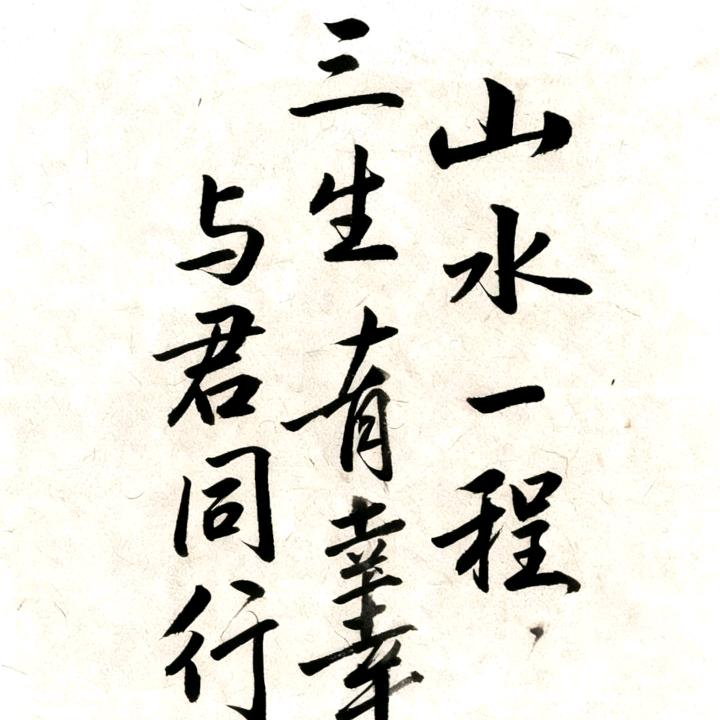 山水一程
三生有幸
与君同行